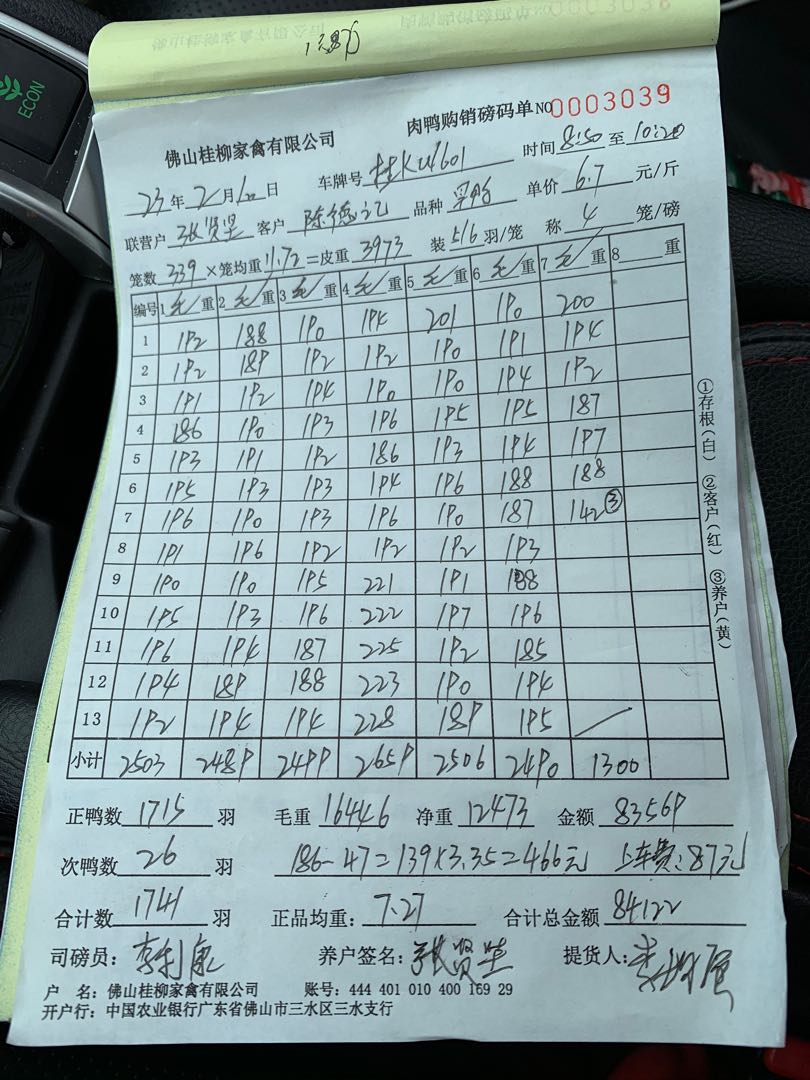 ECON
肉鸭购销磅码单 NO 0003039
佛山桂柳家禽有限公司
时间 8:50 至 10:20
23 年 2 月 10 日 车牌号 桂KU1601
联营户 张贤坚 客户 陈德记 品种 单价 6.7 元/斤
笼数 339 ×笼均重 11.72 =皮重 3973 装 5/6 羽/笼 称 4 笼/磅
编号 1 毛 重 2 毛 重 3 毛 重 4 毛 重 5 毛 重 6 毛 重 7 毛 重 8 重
1 192 188 190 194 201 190 200
2 192 189 192 192 190 191 194
3 191 192 194 190 190 194 192
4 186 190 193 196 195 195 187
5 193 191 192 186 193 194 197
6 195 193 193 194 196 188 188
7 196 190 193 196 190 187 142 ③
8 191 196 192 192 192 193
9 190 190 195 221 191 188
10 195 193 196 222 197 196
11 196 194 187 225 192 185
12 194 189 188 223 190 194
13 192 194 194 228 189 195
小计 2503 2489 2499 2659 2506 2490 1300
①存根(白) ②客户(红) ③养户(黄)
正鸭数 1715 羽 毛重 16446 净重 12473 金额 83569
次鸭数 26 羽 186-47=139×3.35=466元 上车费:87元
合计数 1741 羽 正品均重: 7.27 合计总金额 84122
司磅员: 李利康 养户签名: 张贤坚 提货人:
户 名: 佛山桂柳家禽有限公司 账号: 444 401 010 400 169 29
开户行: 中国农业银行广东省佛山市三水区三水支行